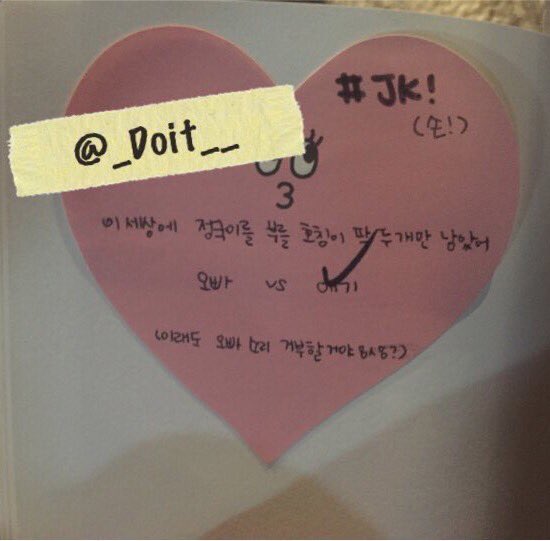 #JK!
(또!)
@_Doit__
3
이 세상에 정국이를 부를 호칭이 딱 두개만 남았어
오빠 vs 애기
(이래도 오빠 소리 거부할거야?)